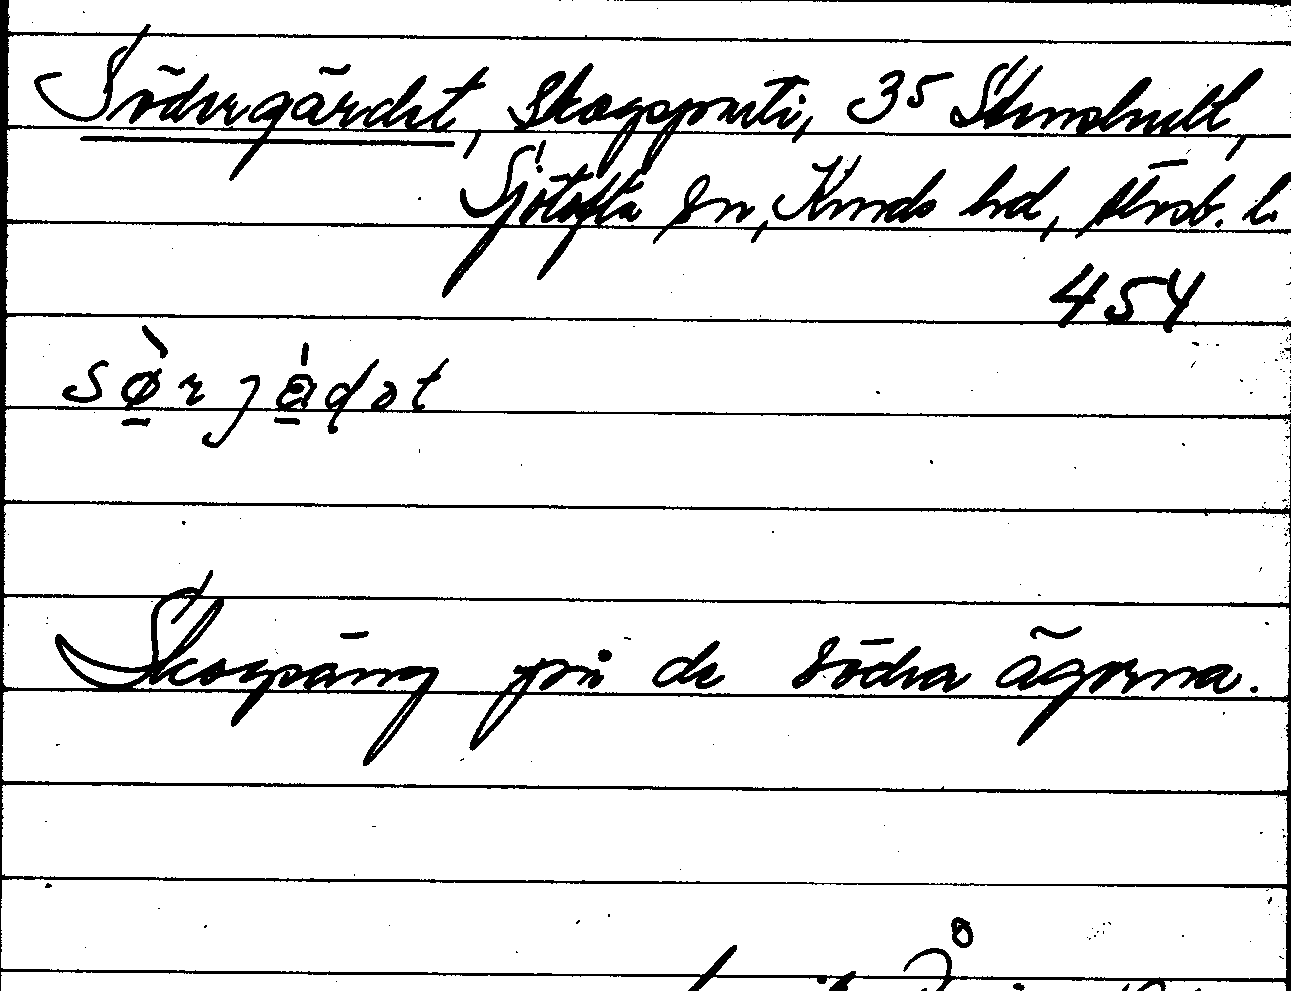 Södergärdet, Skogsparti, 35 Stenshult,
Sjötofta sn, Kinds hd, Älvsb. l.
454
Skogsäng på de södra ägorna.